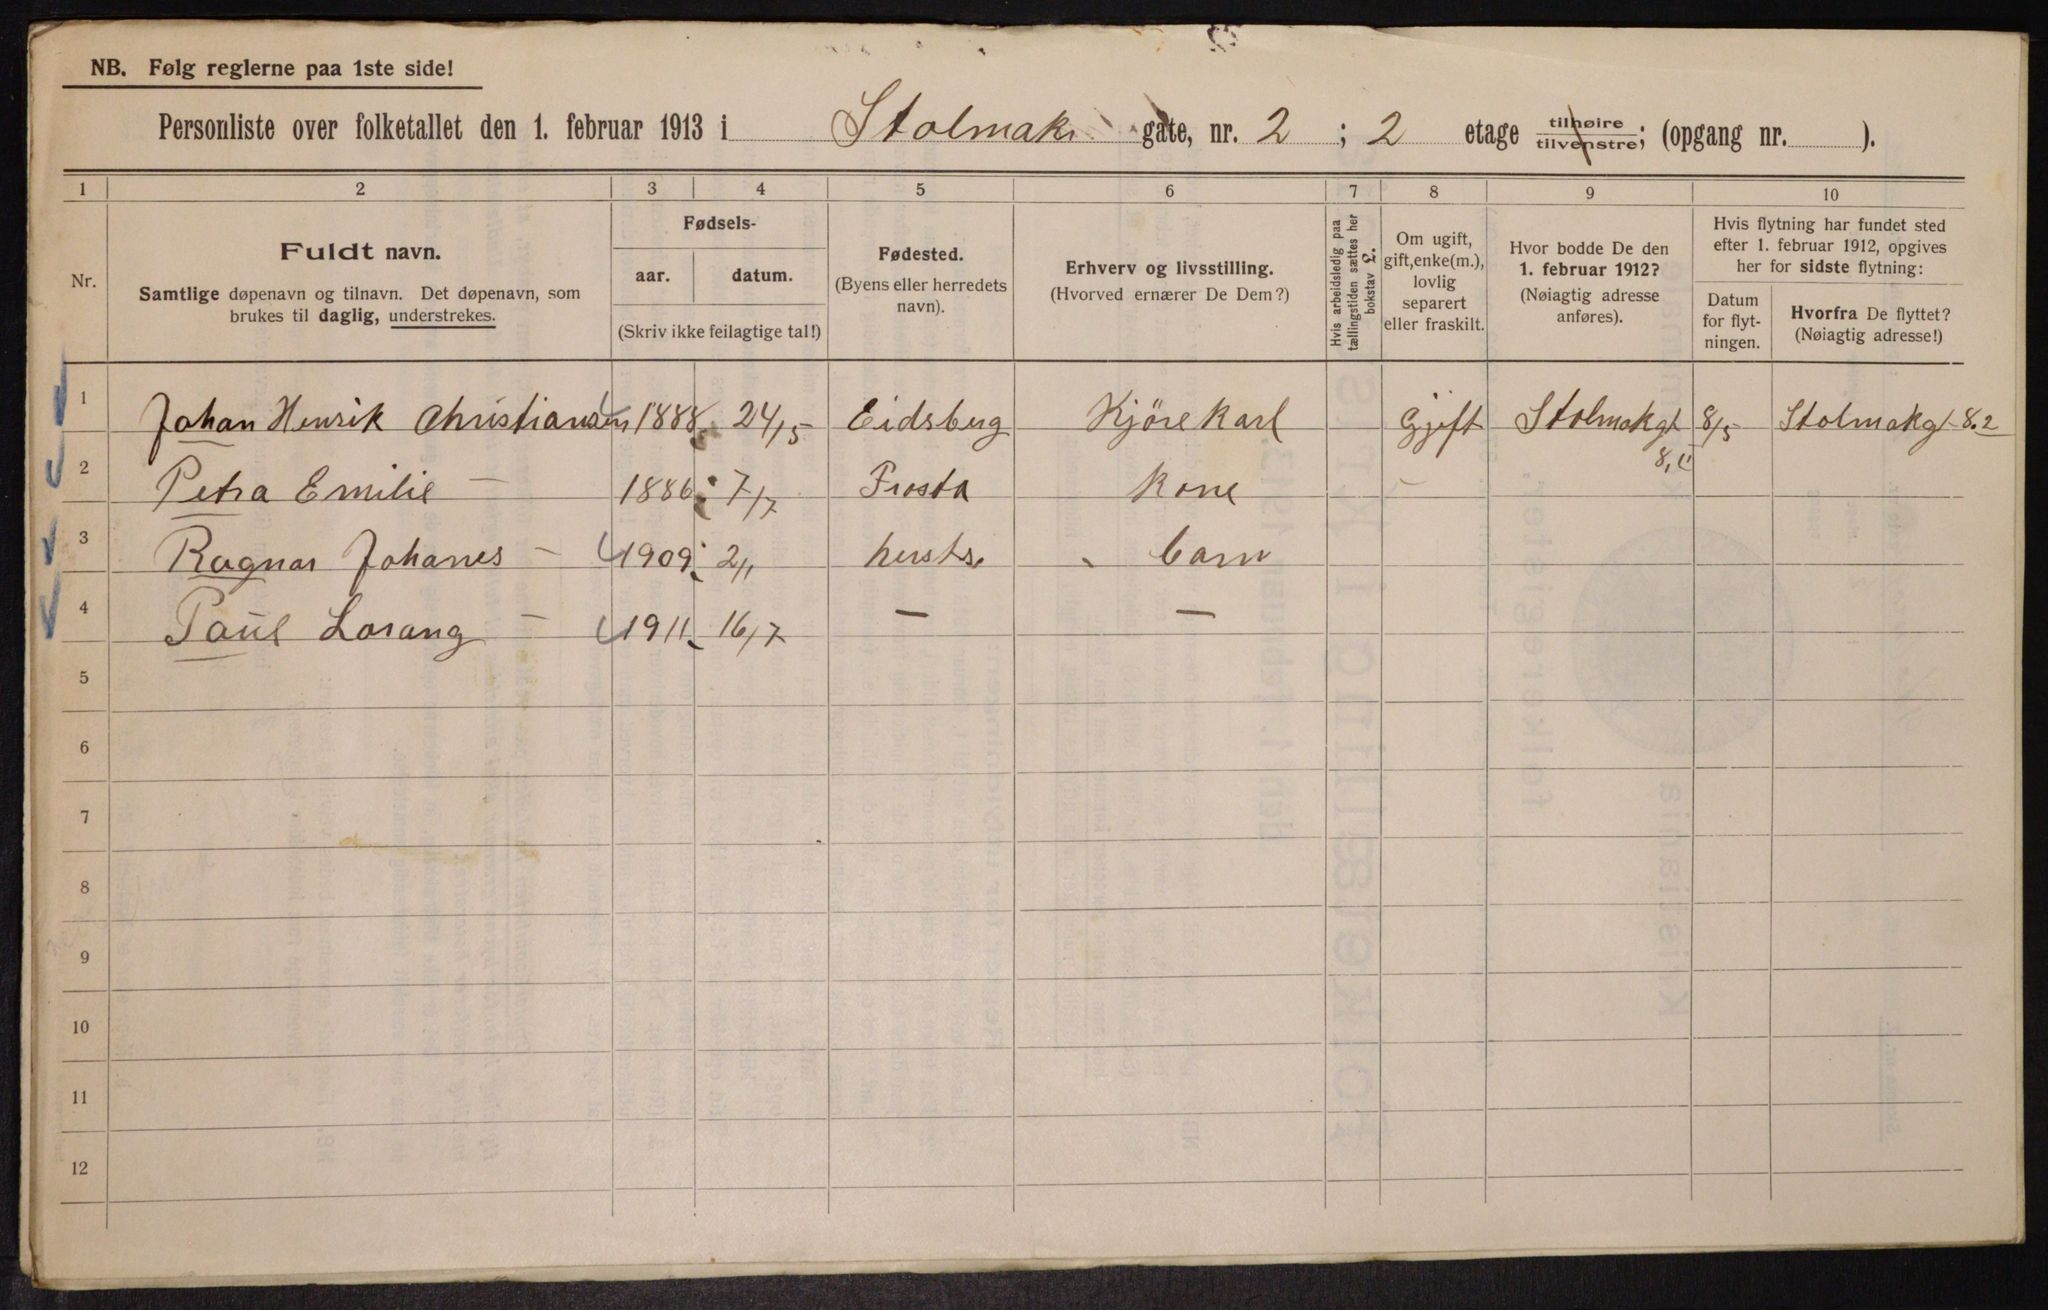 NB. Følg reglerne paa 1ste side!
Personliste over folketallet den 1. februar 1913 i Stolmak gate, nr. 2 ; 2 etage tilhøire tilvenstre; (opgang nr. ).
1 2 3 4 5 6 7 8 9 10
Nr.
Fuldt navn.
Samtlige døpenavn og tilnavn. Det døpenavn, som
brukes til daglig, understrekes.
Fødsels-
aar. datum.
(Skriv ikke feilagtige tal!)
Fødested.
(Byens eller herredets
navn).
Erhverv og livsstilling.
(Hvorved ernærer De Dem?)
Hvis arbeidsledig paa
tællingstiden sættes her
bokstav L.
Om ugift,
gift, enke(m.),
lovlig
separert
eller fraskilt.
Hvor bodde De den
1. februar 1912?
(Nøiagtig adresse
anføres).
Hvis flytning har fundet sted
efter 1. februar 1912, opgives
her for sidste flytning:
Datum
for flyt-
ningen.
Hvorfra De flyttet?
(Nøiagtig adresse!)
1 Johan Henrik Christiansen 1888 24/5 Eidsberg Kjörekarl Gjift Stolmakgt 8/5 Stolmakgt 8.2
2 Petra Emilie — 1886 7/7 Frosta Kone
3 Ragnar Johanes — 1909 2/1 barn
4 Paul Lorang — 1911 16/7 — —
5
6
7
8
9
10
11
12